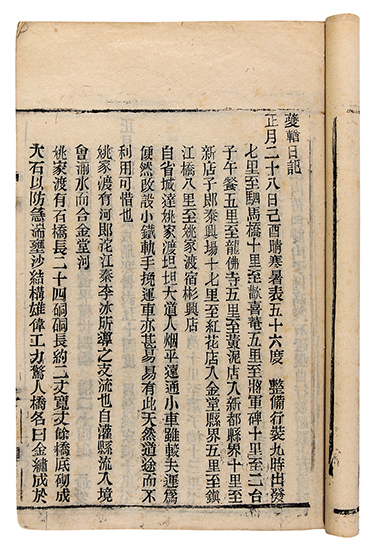 夔輶日記
正月二十八日己酉晴寒暑表五十六度　整備行裝九時出發
七里至駟馬橋十里至歡喜菴五里至將軍碑十里至二台
子午餐五里至龍佛寺五里至黃泥店入新都縣界十里至
新店子即泰興場十七里至紅花店入金堂縣界五里至鎮
江橋八里至姚家渡宿彬興店
自省城達姚家渡坦坦大道人烟平遠通小車雖較夫運爲
便然改設小鐵軌手挽運車亦甚易易有此天然道途而不
利用可惜也
姚家渡有河即沱江秦李冰所導之支流也自灌縣流入境
會湔水而合金堂河
姚家渡有石橋長二十四硐硐長約二丈寬丈餘橋底砌成
大石以防急湍壅沙結構雄偉工力驚人橋名曰金繡成於